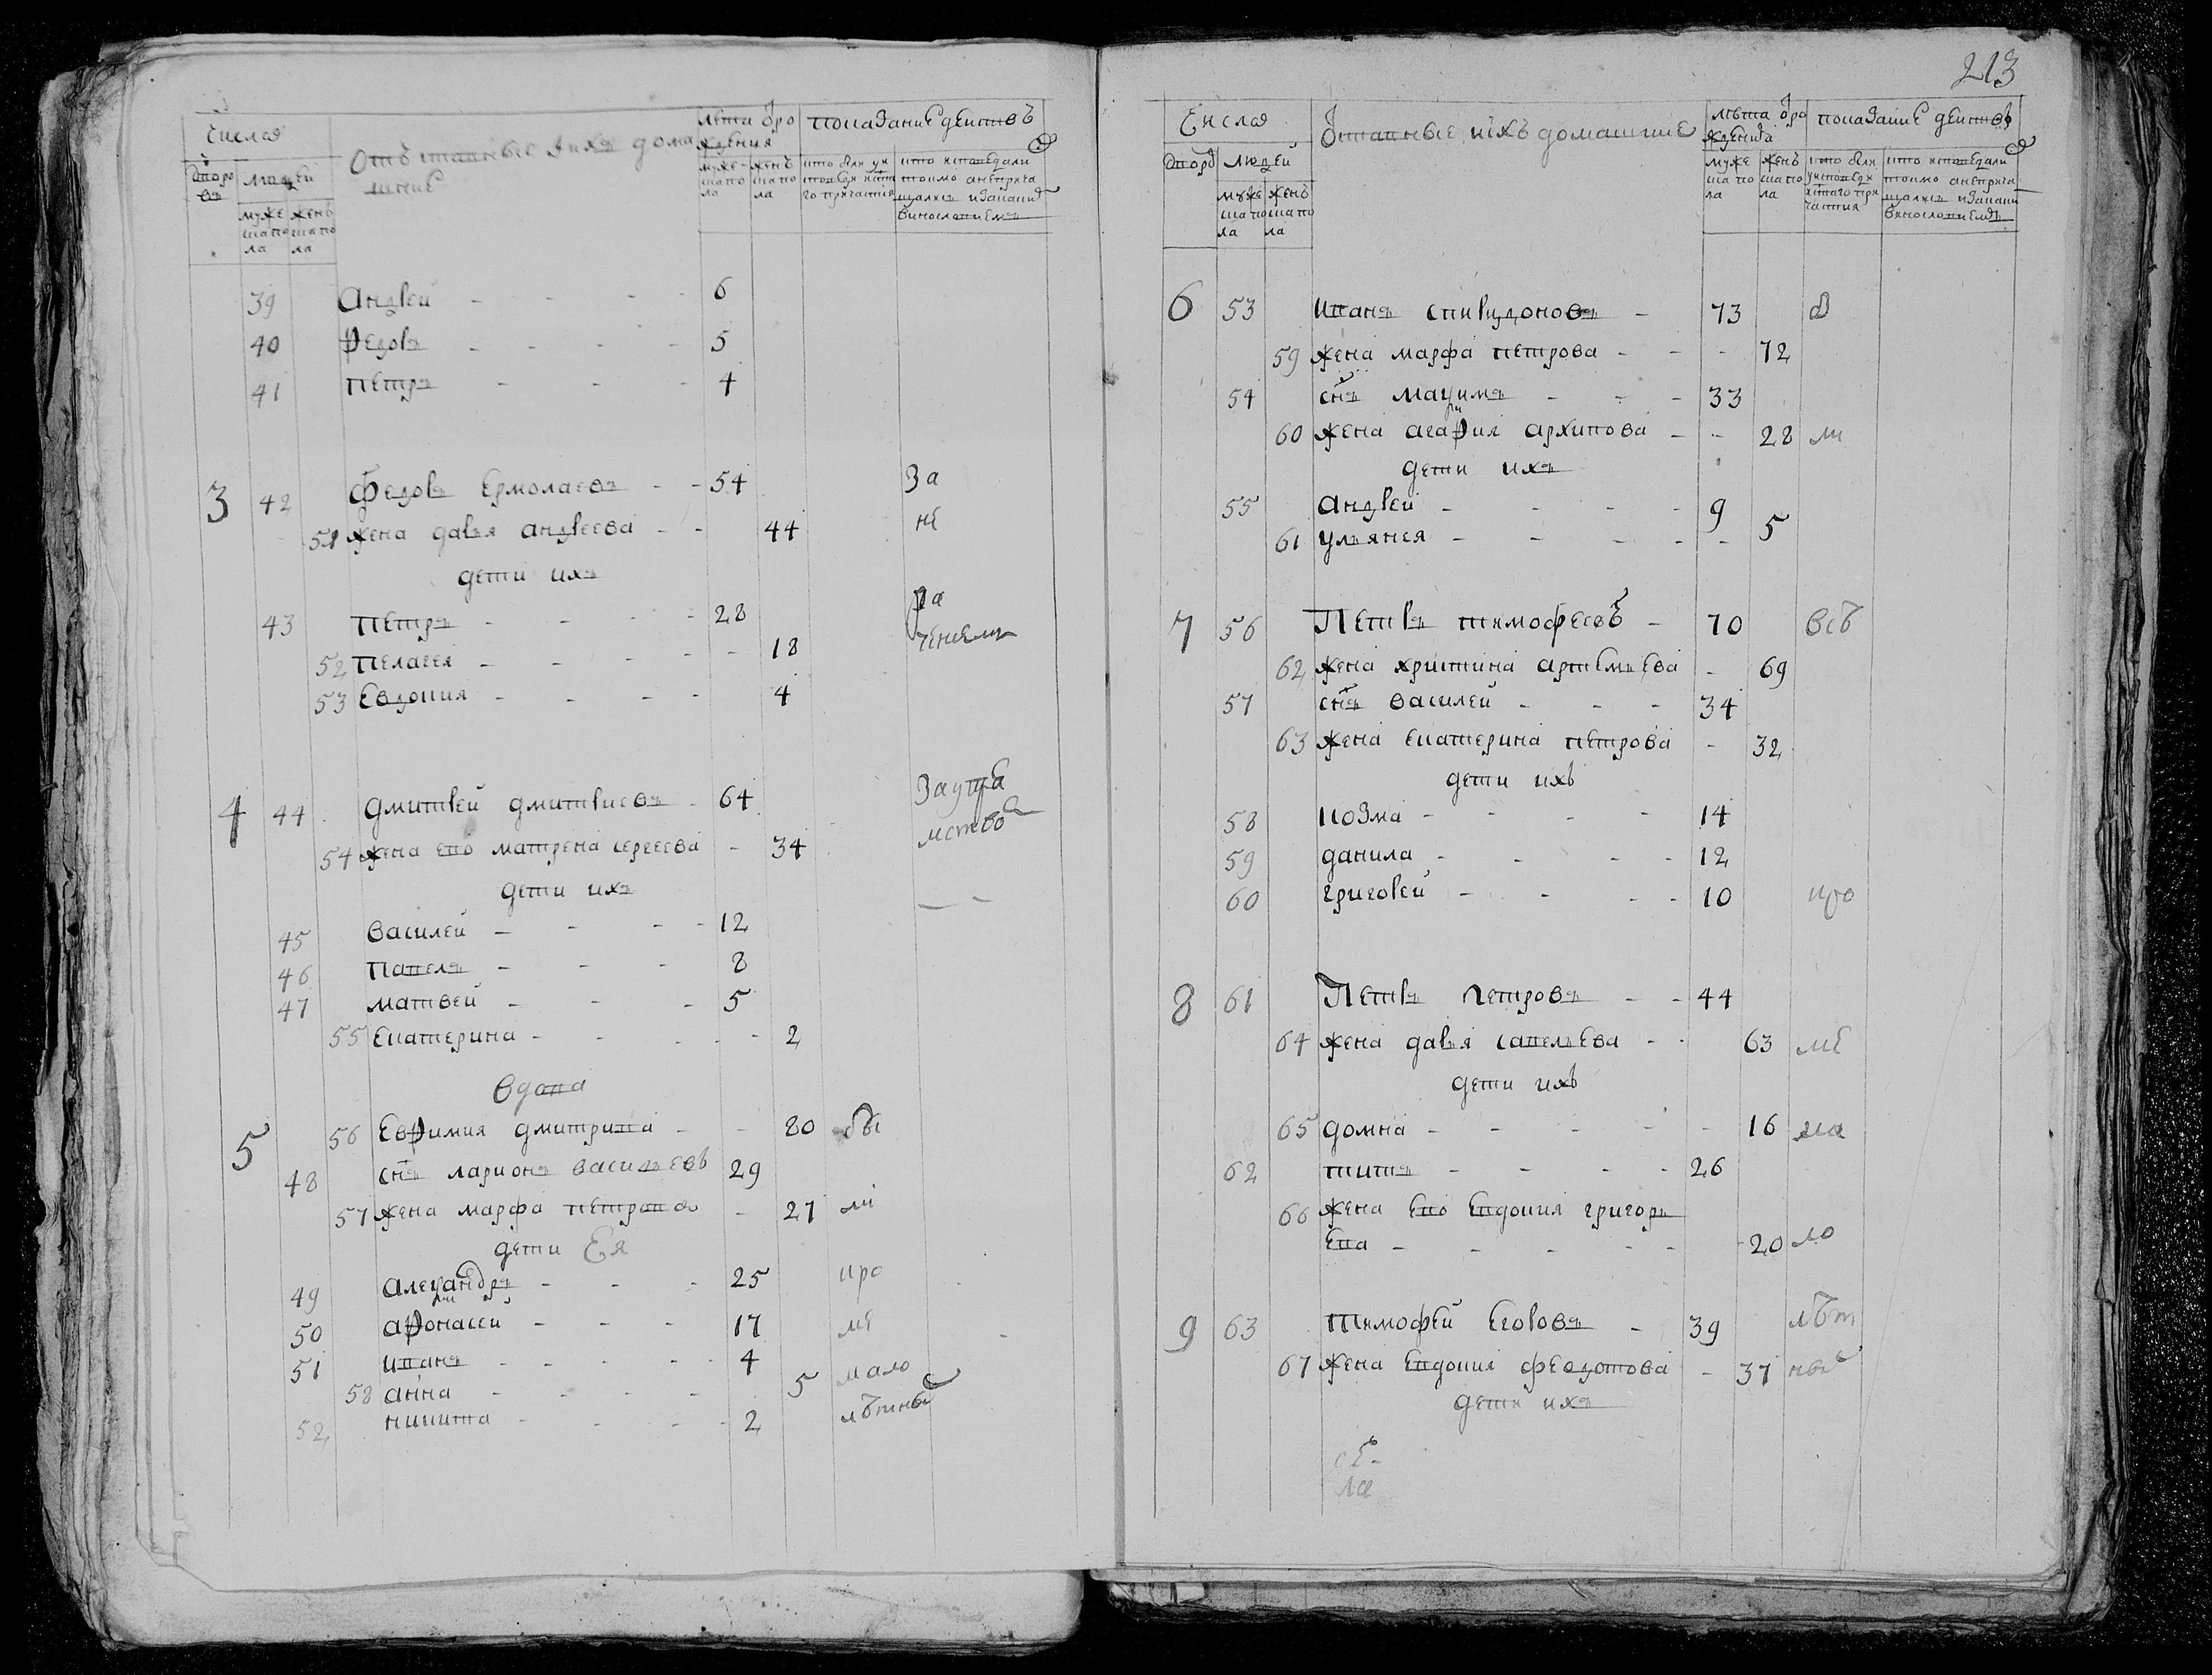 Числа
Отъставные и ихъ дома
шние
Лета от ро
ждения
показание действъ
дворо
въ
людей
муже
ска по
ла
женъ
ска по
ла
муже
ска по
ла
женъ
ска по
ла
кто был у и
споведи и свта
го причастия
кто исповедали
39 Андрей - - - - 6
40 Федоръ - - - - 5
41 Петръ - - - 4
3 42 Федоръ Ермолаевъ - - 54 За
51 жена дарья андреева - - 44 не
дети ихъ
43 Петръ - - - - 28 ра
52 Пелагея - - - - - 18 чением
53 Евдокия - - - - 4
4 44 Дмитрей дмитриевъ - 64 За утра
54 жена ево матрена сергеева - 34
дети ихъ
45 Василей - - - - 12
46 Павелъ - - - 8
47 матвей - - - 5
55 Екатерина - - - - - 2
Вдова
5 56 Евфимия дмитрива - - 80 бы
48 снъ ларионъ васильевъ 29
57 жена марфа петрова - 27 ли
дети Ея
49 Александръ - - - 25 кро
50 афонасеи - - - 17 ме
51 иванъ - - - - - 4 мало
58 анна - - - - 5
52 никита - - - - 2 лѣтныхъ
213
Числа
Отставные и ихъ домашние
лѣта от ро
ждения
показание действъ
дворъ
людей
муже
ска по
ла
женъ
ска по
ла
муже
ска по
ла
женъ
ска по
ла
6 53 Иванъ спиридоновъ - 73
59 жена марфа петрова - - - 72
54 снъ Маѯимъ - - - 33
60 жена агафия архипова - - 28 ли
дети ихъ
55 Андрей - - - - 9
61 ульянея - - - - - 5
7 56 Петръ тимофеевъ - 70 всѣ
62 жена христина артемьева - 69
57 снъ василей - - - 34
63 жена екатерина петрова - 32
дети ихъ
58 козма - - - - 14
59 данила - - - - 12
60 григорей - - - - 10 кро
8 61 Петръ Петровъ - - 44
64 жена дарья савельева - - 63 ме
дети ихъ
65 домна - - - - - 16 ма
62 титъ - - - - 26
66 жена ево Евдокия григорь
ева - - - - - 20 ло
9 63 Тимофей Егоровъ - 39 лѣт
67 жена Евдокия феодотова - 37 ныхъ
дети ихъ
се-
ла